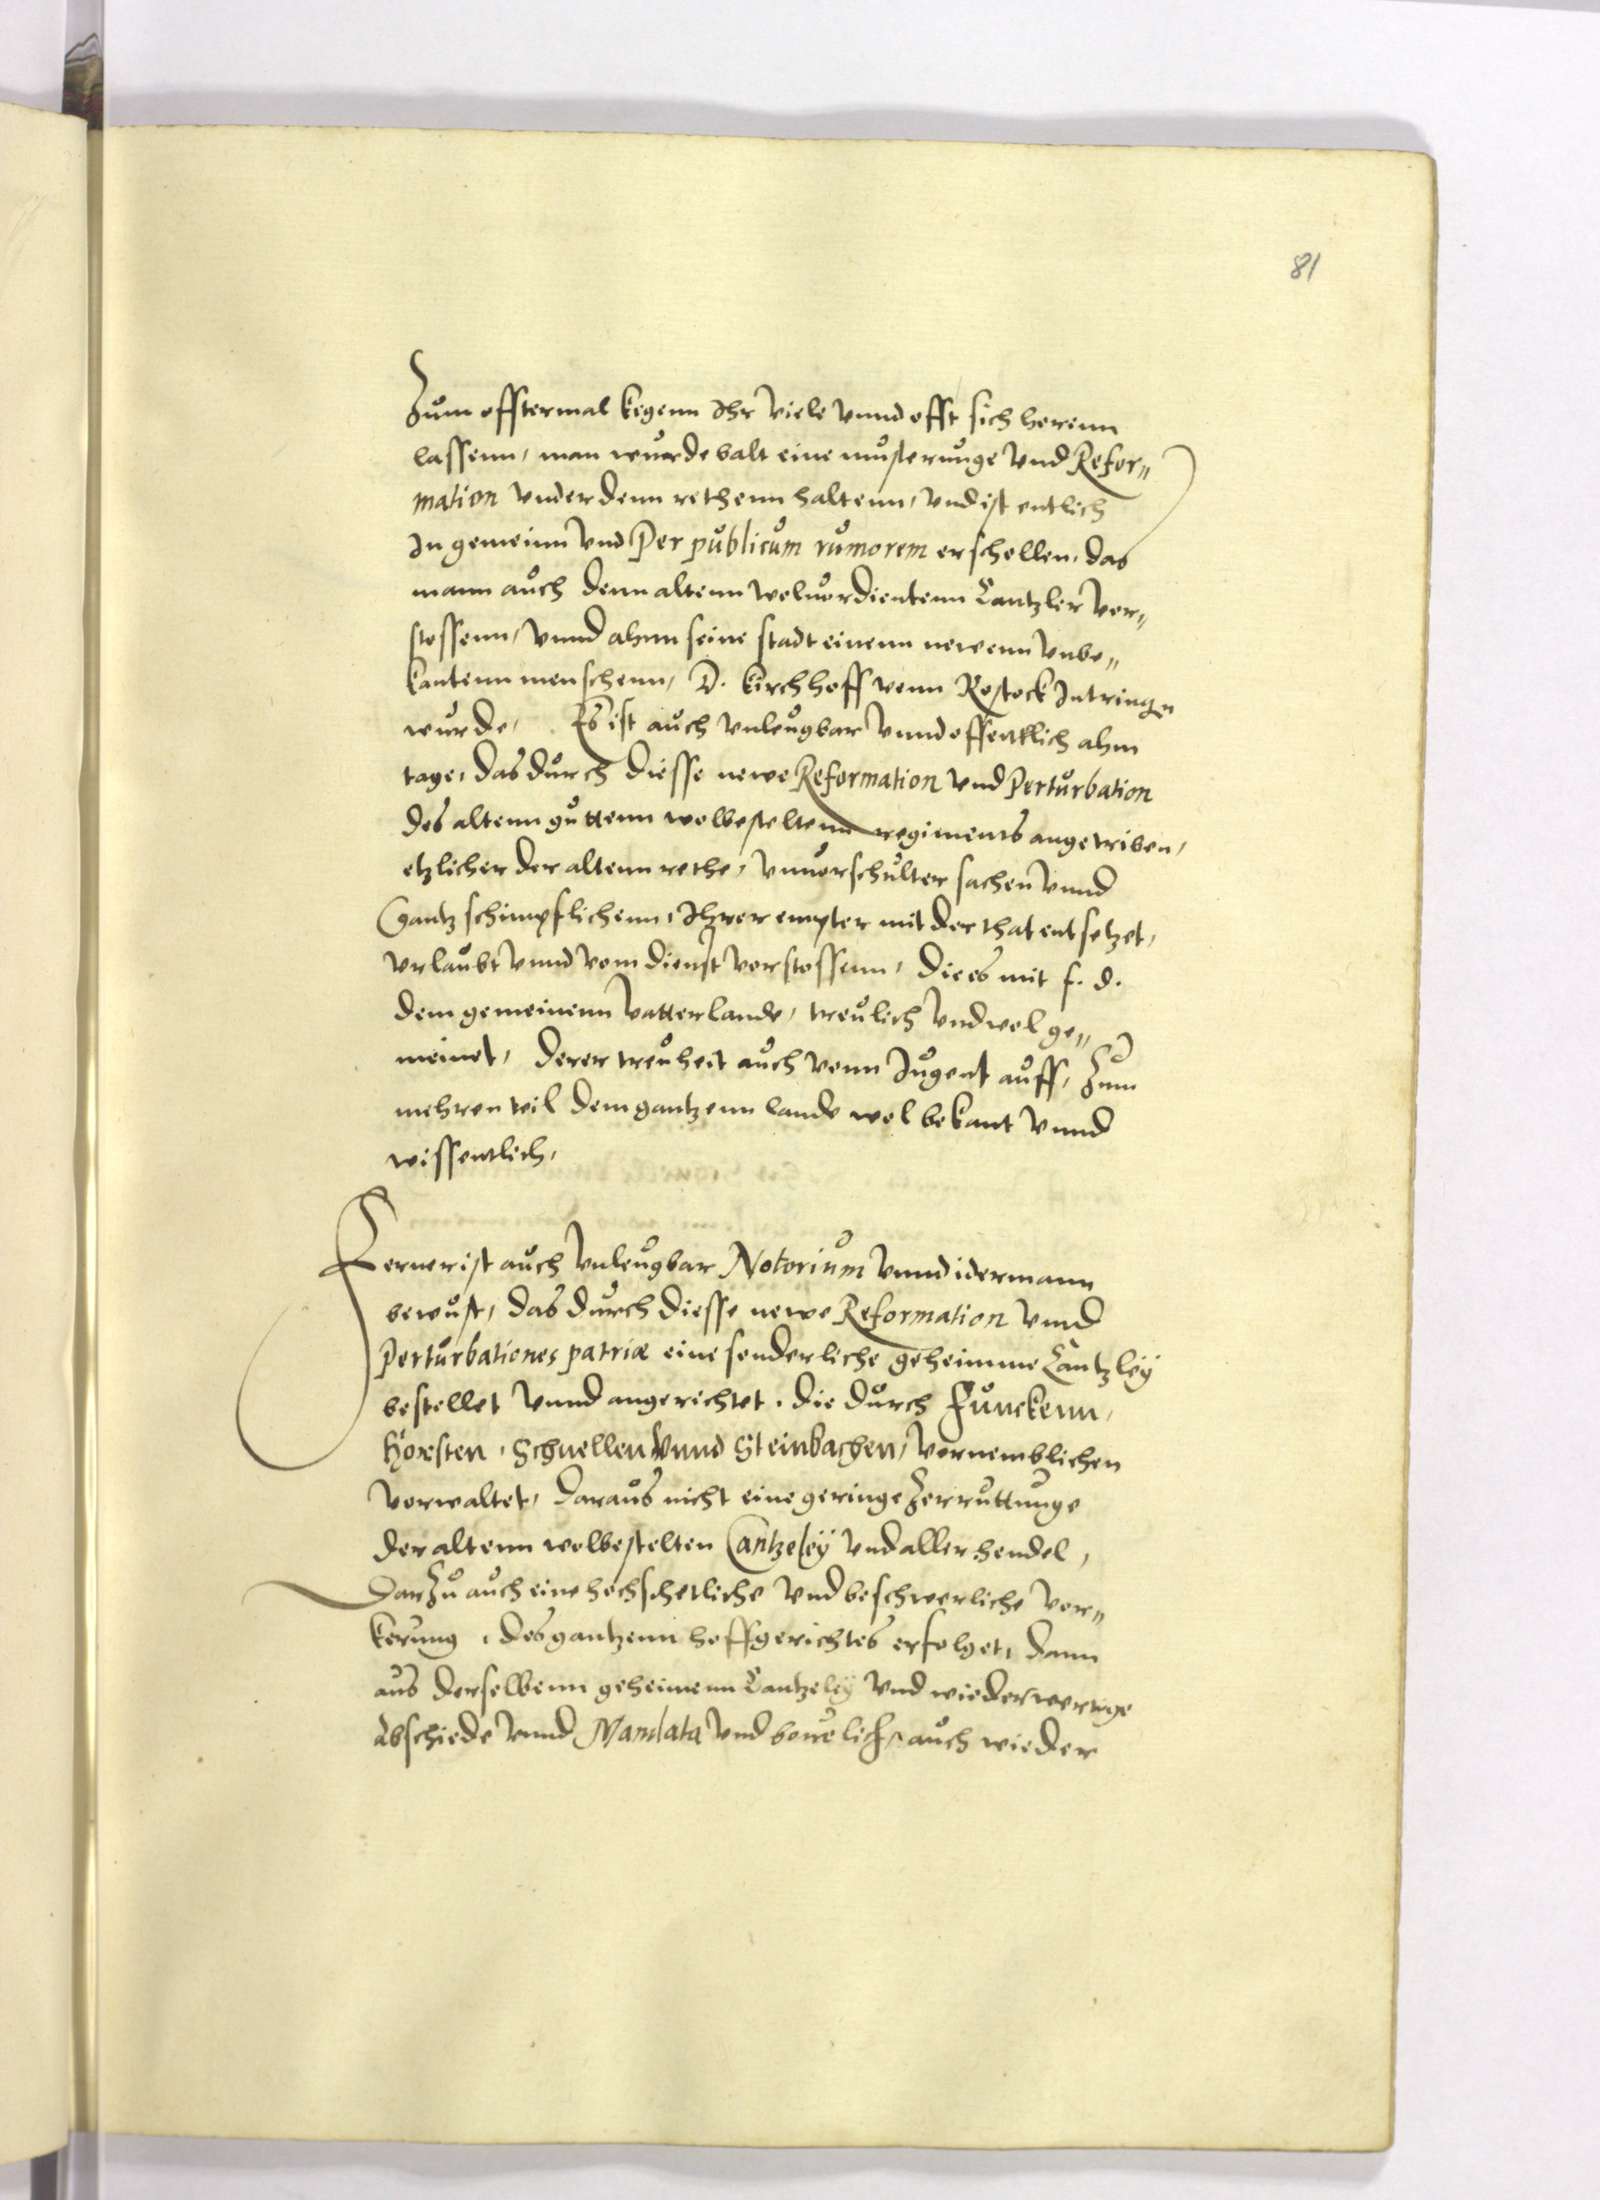 81
Zum offtermal kegenn Ihr viele vnnd offt sich herenn
lassenn, man wurde balt eine musterunge vnd Refor„
mation vnder denn rethenn haltenn, vnd ist entlich
In gemeinn vnd Per publicum rumorem erschellen, das
mann auch denn altenn woluordientenn Cantzler ver„
stossenn, vnnd ahnn seine stadt einenn newenn vnbe„
kantenn menschenn, D. Kirchhoff vonn Rostock Intringen
wurde, Es ist auch vnleugbar vnnd offentlich ahm
tage, das durch diesse newe Reformation vnd Perturbation
des altenn guttenn wolbesteltenn regiments angetriben,
etzlicher der altenn rethe, vnuorschulter sachen vnnd
Gantz schimpflichenn, Ihrer empter mit der that entsetzet,
vrlaubt vnnd vom dienst vorstossenn, die es mit f. d.
dem gemeinenn vatterlande, treulich vnd wol ge„
meinet, derer treuheit auch vonn Jugent auff, zum
mehren teil dem gantzenn lande wol bekant vnnd
wissentlich,
Ferner ist auch vnleugbar Notorium vnnd idermann
bewust, das durch diesse newe Reformation vnnd
Perturbationes patriæ eine sonderliche geheimme Cantzley
bestellet vnnd angerichtet, die durch Funckenn,
Horsten, Schnellen vnnd Steinbachen, vornemblichen
vorwaltet, daraus nicht eine geringe zerruttunge
der altenn wolbestelten Cantzeley vnd aller hendel,
Darzu auch eine hochschetliche vnd beschwerliche vor„
kerung, des gantzenn hoffgerichtes erfolget, dann
aus derselbenn geheimenn Cantzeley vnd wiederwertige
Abschiede vnnd Mandata vnd beuelich, auch wieder